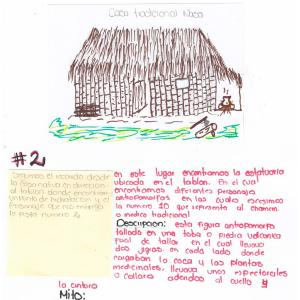 Casa tradicional Nasa
#2
Seguimos el recorrido desde
la casa nativa en dirección
al tablon donde encontramos
un punto de hidratación y el
Personaje que nos entrega
la pista numero 2.
en este lugar encontramos la estatuaria
ubicada en el tablon. En el cual
encontramos diferentes personajes
antropomorfos en los cuales
la numero 10 que representa al chaman
o medico tradicional
Descripcion: esta figura antropomorfa
tallada en una toba o piedra volcanica
de tallar en el cual llevaua
dos jigras en cada lado donde
cargaban la coca y las plantas
medicinales, llevaua unos
o collares adendos al cuello
la cintura
Mito: